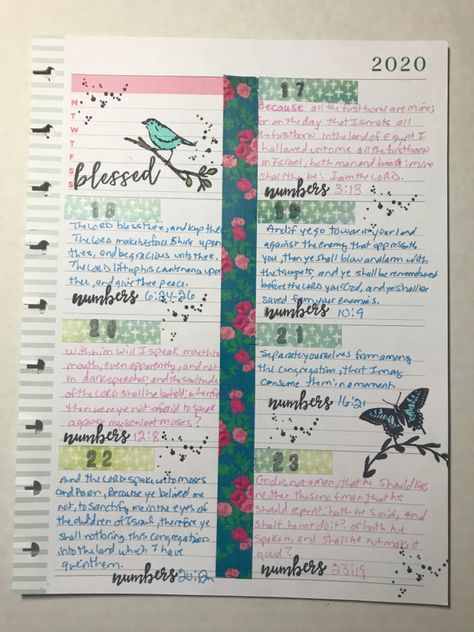 2020
M
T
W
T
F
S
S
blessed
17
Because all the firstborn are mine;
for on the day that I smote all
the firstborn in the land of Egypt I
hallowed unto me all the firstborn
in Israel, both man and beast: mine
shall they be: I am the LORD.
numbers 3:13
18
The LORD bless thee, and keep thee
The LORD make his face shine upon
thee, and be gracious unto thee.
The LORD lift up his countenance upon
thee, and give thee peace.
numbers 6:24-26
19
And if ye go to war in your land
against the enemy that oppresseth
you, then ye shall blow an alarm with
the trumpets, and ye shall be remembered
before the LORD your God, and ye shall be
saved from your enemies.
numbers 10:9
20
With him will I speak mouth to
mouth, even apparently, and not
in dark speeches; and the similitude
of the LORD shall he behold; wherefore
then were ye not afraid to speak
against my servant moses?
numbers 12:8
21
Separate yourselves from among
this congregation, that I may
consume them in a moment.
numbers 16:21
22
And the LORD spake unto moses
and Aaron, Because ye believed me
not, to sanctify me in the eyes of
the children of Israel, therefore ye
shall not bring this congregation
into the land which I have
given them.
numbers 20:12
23
God is not a man, that he should lie;
neither the son of man that he
should repent: hath he said, and
shall he not do it? or hath he
spoken, and shall he not make it
good?
numbers 23:19